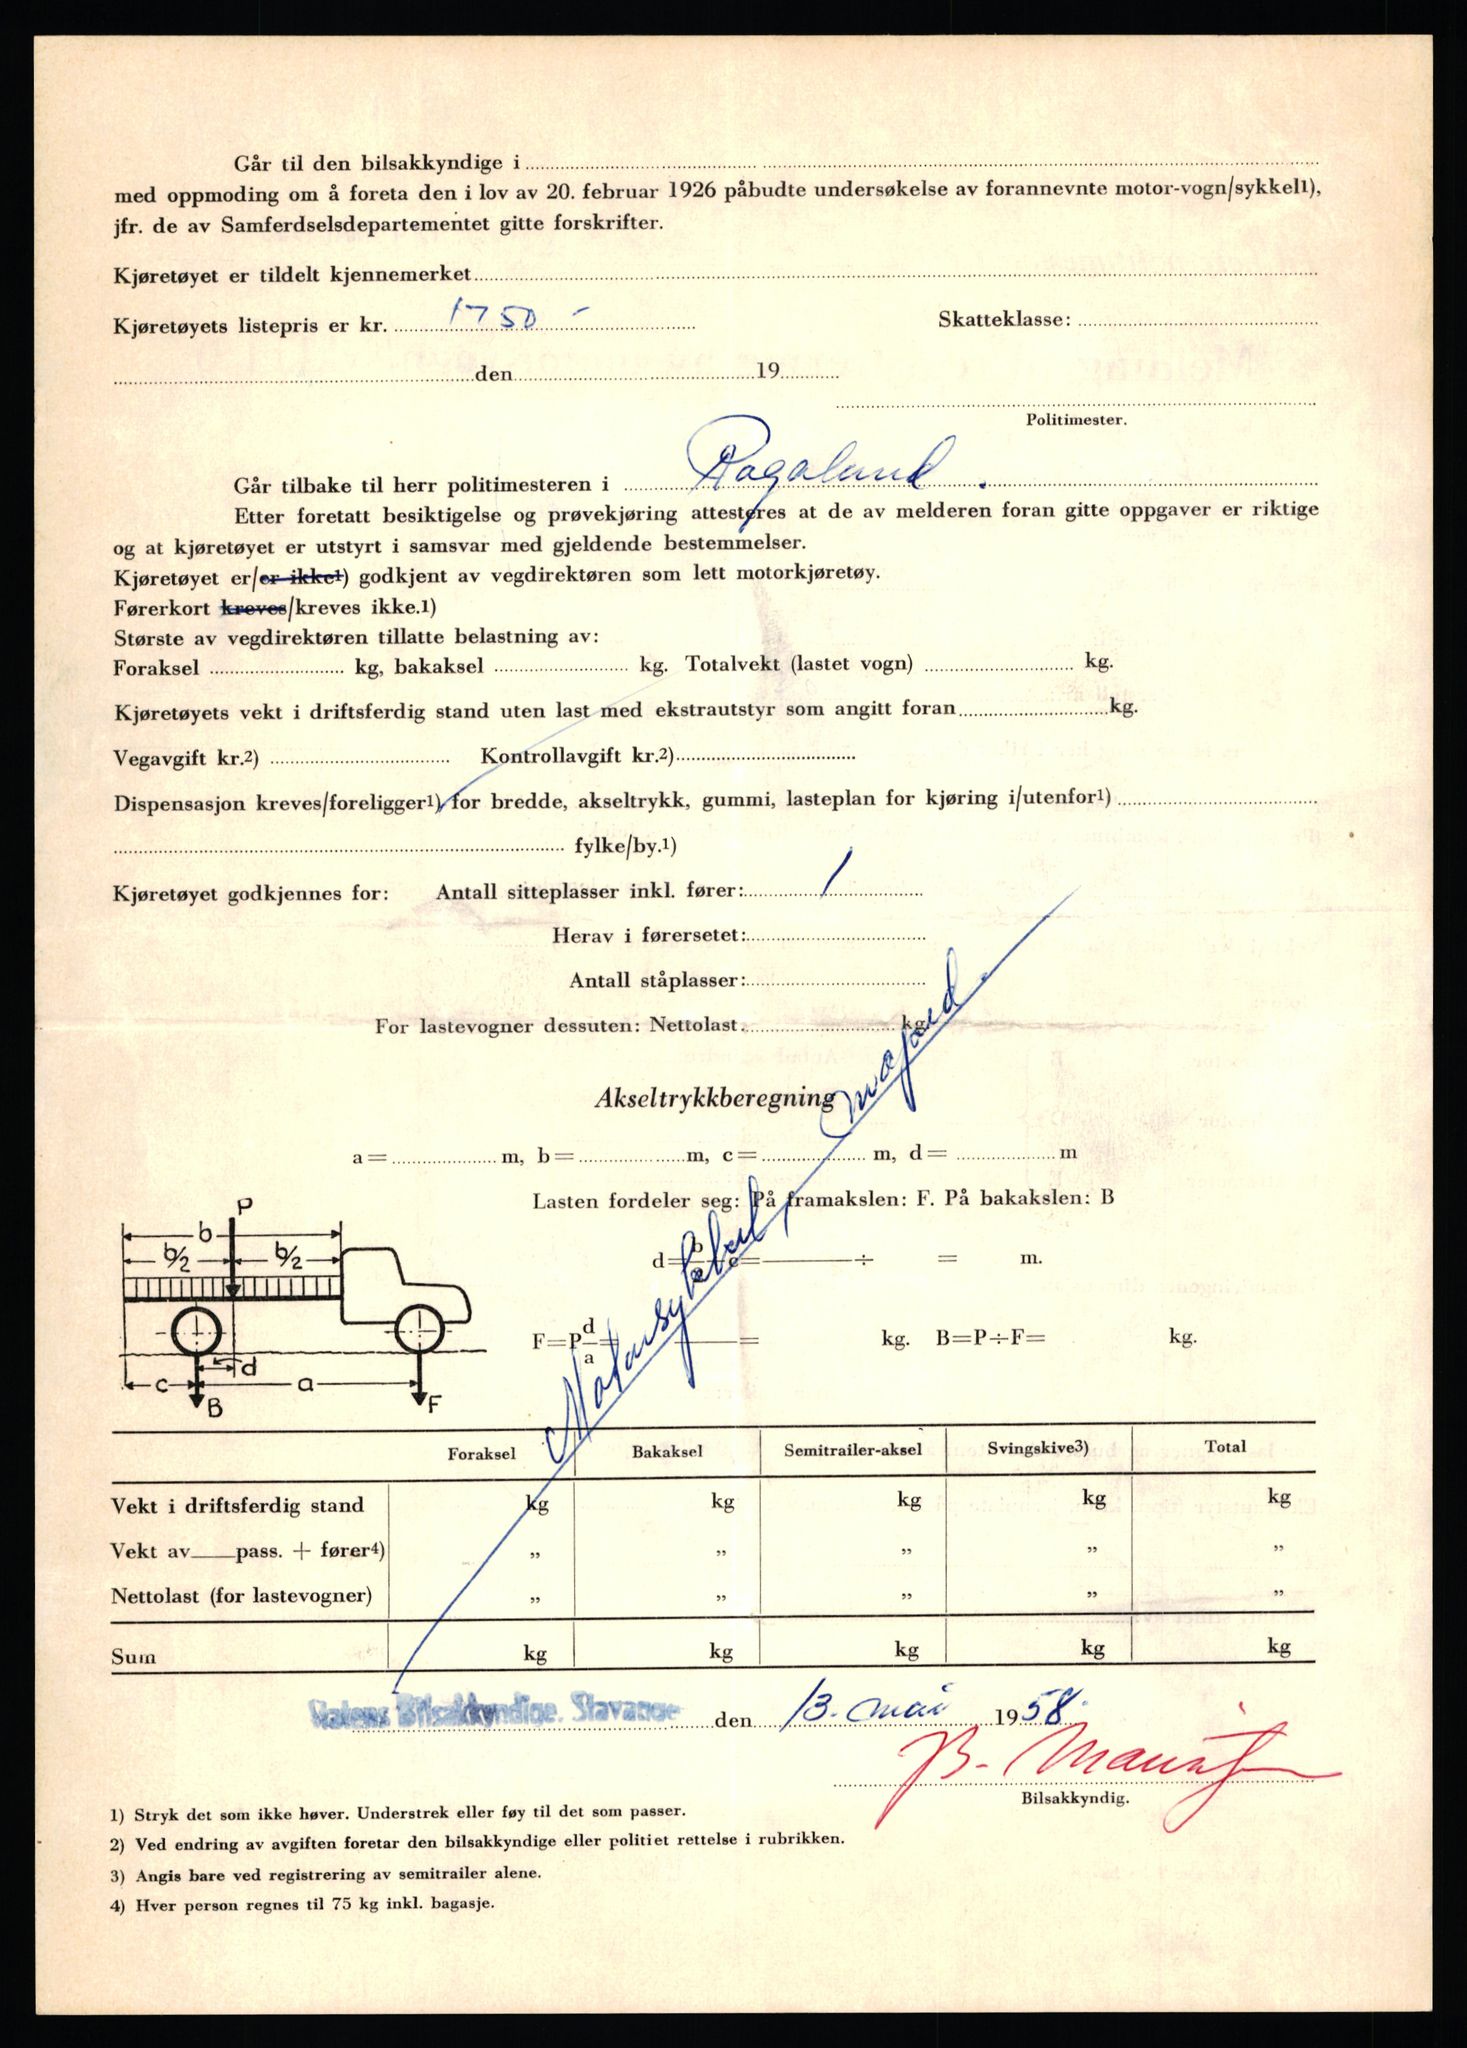 Går til den bilsakkyndige i
med oppmoding om å foreta den i lov av 20. februar 1926 påbudte undersøkelse av forannevnte motor-vogn/sykkel1),
jfr. de av Samferdselsdepartementet gitte forskrifter.
Kjøretøyet er tildelt kjennemerket
Kjøretøyets listepris er kr. 1750 - Skatteklasse:
den 19
Politimester.
Går tilbake til herr politimesteren i Rogaland.
Etter foretatt besiktigelse og prøvekjøring attesteres at de av melderen foran gitte oppgaver er riktige
og at kjøretøyet er utstyrt i samsvar med gjeldende bestemmelser.
Kjøretøyet er/er ikke1) godkjent av vegdirektøren som lett motorkjøretøy.
Førerkort kreves/kreves ikke.1)
Største av vegdirektøren tillatte belastning av:
Foraksel kg, bakaksel kg. Totalvekt (lastet vogn) kg.
Kjøretøyets vekt i driftsferdig stand uten last med ekstrautstyr som angitt foran kg.
Vegavgift kr.2) Kontrollavgift kr.2)
Dispensasjon kreves/foreligger1) for bredde, akseltrykk, gummi, lasteplan for kjøring i/utenfor1)
fylke/by.1)
Kjøretøyet godkjennes for: Antall sitteplasser inkl. fører: 1
Herav i førersetet:
Antall ståplasser:
For lastevogner dessuten: Nettolast. kg.
Akseltrykkberegning
a= m, b= m, c= m, d= m
Lasten fordeler seg: På framakslen: F. På bakakslen: B
d=b/2-c= ÷ = m.
F=P d/a= = kg. B=P÷F= kg.
P
b
b/2 b/2
d
c a
B F
Motorsykkel
Foraksel Bakaksel Semitrailer-aksel Svingskive3) Total
Vekt i driftsferdig stand kg kg kg kg kg
Vekt av pass. + fører4) „ „ „ „ „
Nettolast (for lastevogner) „ „ „ „ „
Sum kg kg kg kg kg
Statens Bilsakkyndige. Stavange den 13. mai 1958.
B.
Bilsakkyndig.
1) Stryk det som ikke høver. Understrek eller føy til det som passer.
2) Ved endring av avgiften foretar den bilsakkyndige eller politiet rettelse i rubrikken.
3) Angis bare ved registrering av semitrailer alene.
4) Hver person regnes til 75 kg inkl. bagasje.